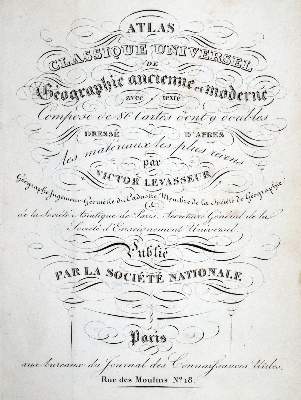 ATLAS
CLASSIQUE UNIVERSEL
DE
Géographie ancienne et moderne
avec texte
Composé de Cartes dont 9 doubles
DRESSÉ D'APRÈS
les matériaux les plus récens
par
VICTOR LEVASSEUR,
Géographe Ingénieur Géomètre du Cadastre Membre de la Société de Géographie
de la Société Asiatique de Paris, Secrétaire Général de la
Société d'Enseignement Universel
Publié
PAR LA SOCIÉTÉ NATIONALE
Paris
aux bureaux du Journal des Connaissances Utiles,
Rue des Moulins N° 18.